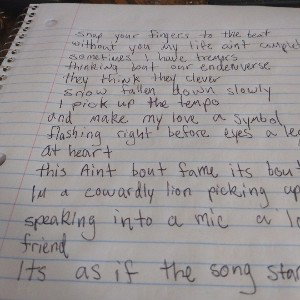 Snap your fingers to the beat
without you my life aint
sometimes I have tremors
thinking bout our
they think they clever
snow fallen down slowly
I pick up the tempo
and make my love a symbol
flashing right before eyes a
at heart
this Aint bout fame its bout
Im a cowardly lion picking up
speaking into a mic a
friend
Its as if the song